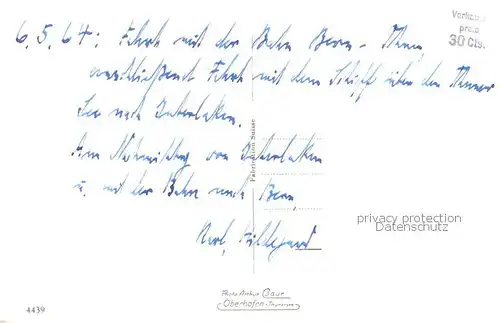 6.5.64: Fahrt mit der Bahn Bern - Thun,
anschließend Fahrt mit dem Schiff über den Thuner
See nach Interlaken.
Am Nachmittag von Interlaken
u. mit der Bahn nach Bern.
Karl, Hildegard
Verkaufs
preis
30 Cts.
Fabrication Suisse
privacy protection
Datenschutz
Photo Arthur Baur
Oberhofen
4439